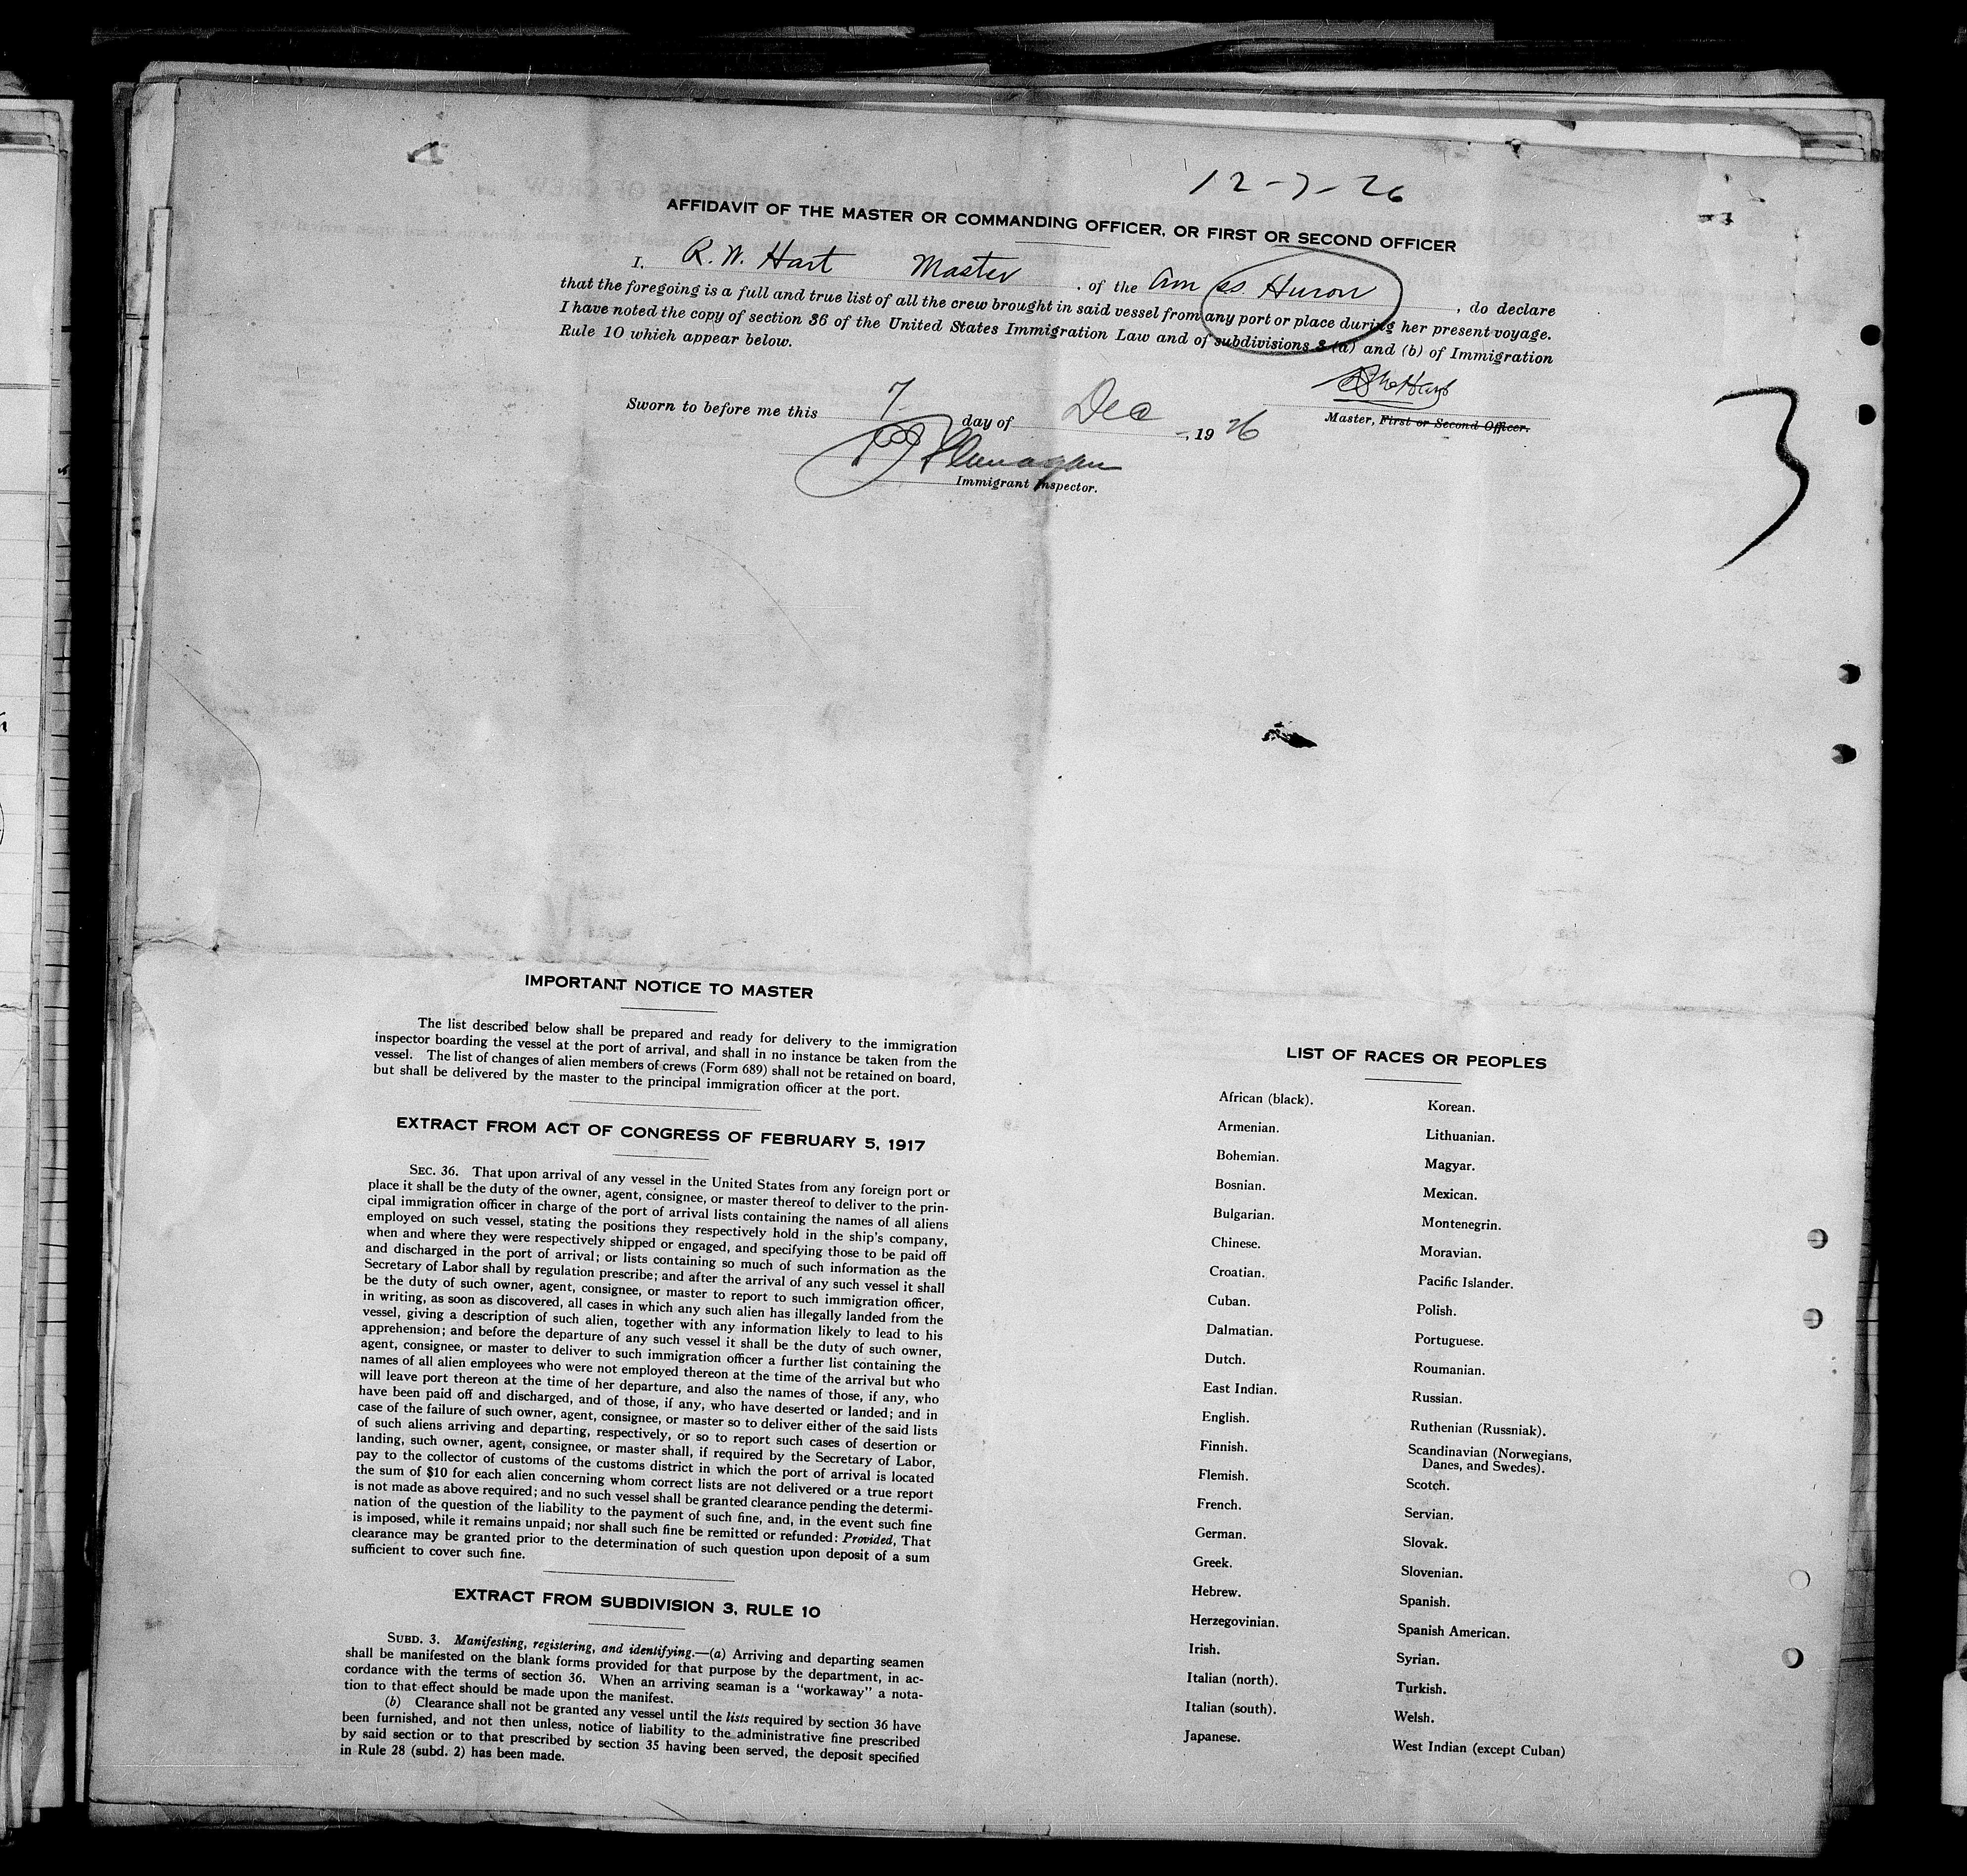 12-7-26
AFFIDAVIT OF THE MASTER OR COMMANDING OFFICER, OR FIRST OR SECOND OFFICER
I, R. W. Hart Master, of the Am ss Huron, do declare
that the foregoing is a full and true list of all the crew brought in said vessel from any port or place during her present voyage.
I have noted the copy of section 36 of the United States Immigration Law and of subdivisions 3 (a) and (b) of Immigration
Rule 10 which appear below.
Sworn to before me this 7 day of Dec, 1926
Master, First or Second Officer.
Flanagan
Immigrant Inspector.
3
IMPORTANT NOTICE TO MASTER
The list described below shall be prepared and ready for delivery to the immigration
inspector boarding the vessel at the port of arrival, and shall in no instance be taken from the
vessel. The list of changes of alien members of crews (Form 689) shall not be retained on board,
but shall be delivered by the master to the principal immigration officer at the port.
EXTRACT FROM ACT OF CONGRESS OF FEBRUARY 5, 1917
SEC. 36. That upon arrival of any vessel in the United States from any foreign port or
place it shall be the duty of the owner, agent, consignee, or master thereof to deliver to the prin-
cipal immigration officer in charge of the port of arrival lists containing the names of all aliens
employed on such vessel, stating the positions they respectively hold in the ship's company,
when and where they were respectively shipped or engaged, and specifying those to be paid off
and discharged in the port of arrival; or lists containing so much of such information as the
Secretary of Labor shall by regulation prescribe; and after the arrival of any such vessel it shall
be the duty of such owner, agent, consignee, or master to report to such immigration officer,
in writing, as soon as discovered, all cases in which any such alien has illegally landed from the
vessel, giving a description of such alien, together with any information likely to lead to his
apprehension; and before the departure of any such vessel it shall be the duty of such owner,
agent, consignee, or master to deliver to such immigration officer a further list containing the
names of all alien employees who were not employed thereon at the time of the arrival but who
will leave port thereon at the time of her departure, and also the names of those, if any, who
have been paid off and discharged, and of those, if any, who have deserted or landed; and in
case of the failure of such owner, agent, consignee, or master so to deliver either of the said lists
of such aliens arriving and departing, respectively, or so to report such cases of desertion or
landing, such owner, agent, consignee, or master shall, if required by the Secretary of Labor,
pay to the collector of customs of the customs district in which the port of arrival is located
the sum of $10 for each alien concerning whom correct lists are not delivered or a true report
is not made as above required; and no such vessel shall be granted clearance pending the determi-
nation of the question of the liability to the payment of such fine, and, in the event such fine
is imposed, while it remains unpaid; nor shall such fine be remitted or refunded: Provided, That
clearance may be granted prior to the determination of such question upon deposit of a sum
sufficient to cover such fine.
EXTRACT FROM SUBDIVISION 3, RULE 10
SUBD. 3. Manifesting, registering, and identifying.—(a) Arriving and departing seamen
shall be manifested on the blank forms provided for that purpose by the department, in ac-
cordance with the terms of section 36. When an arriving seaman is a "workaway" a nota-
tion to that effect should be made upon the manifest.
(b) Clearance shall not be granted any vessel until the lists required by section 36 have
been furnished, and not then unless, notice of liability to the administrative fine prescribed
by said section or to that prescribed by section 35 having been served, the deposit specified
in Rule 28 (subd. 2) has been made.
LIST OF RACES OR PEOPLES
African (black).
Armenian.
Bohemian.
Bosnian.
Bulgarian.
Chinese.
Croatian.
Cuban.
Dalmatian.
Dutch.
East Indian.
English.
Finnish.
Flemish.
French.
German.
Greek.
Hebrew.
Herzegovinian.
Irish.
Italian (north).
Italian (south).
Japanese.
Korean.
Lithuanian.
Magyar.
Mexican.
Montenegrin.
Moravian.
Pacific Islander.
Polish.
Portuguese.
Roumanian.
Russian.
Ruthenian (Russniak).
Scandinavian (Norwegians,
Danes, and Swedes).
Scotch.
Servian.
Slovak.
Slovenian.
Spanish.
Spanish American.
Syrian.
Turkish.
Welsh.
West Indian (except Cuban)